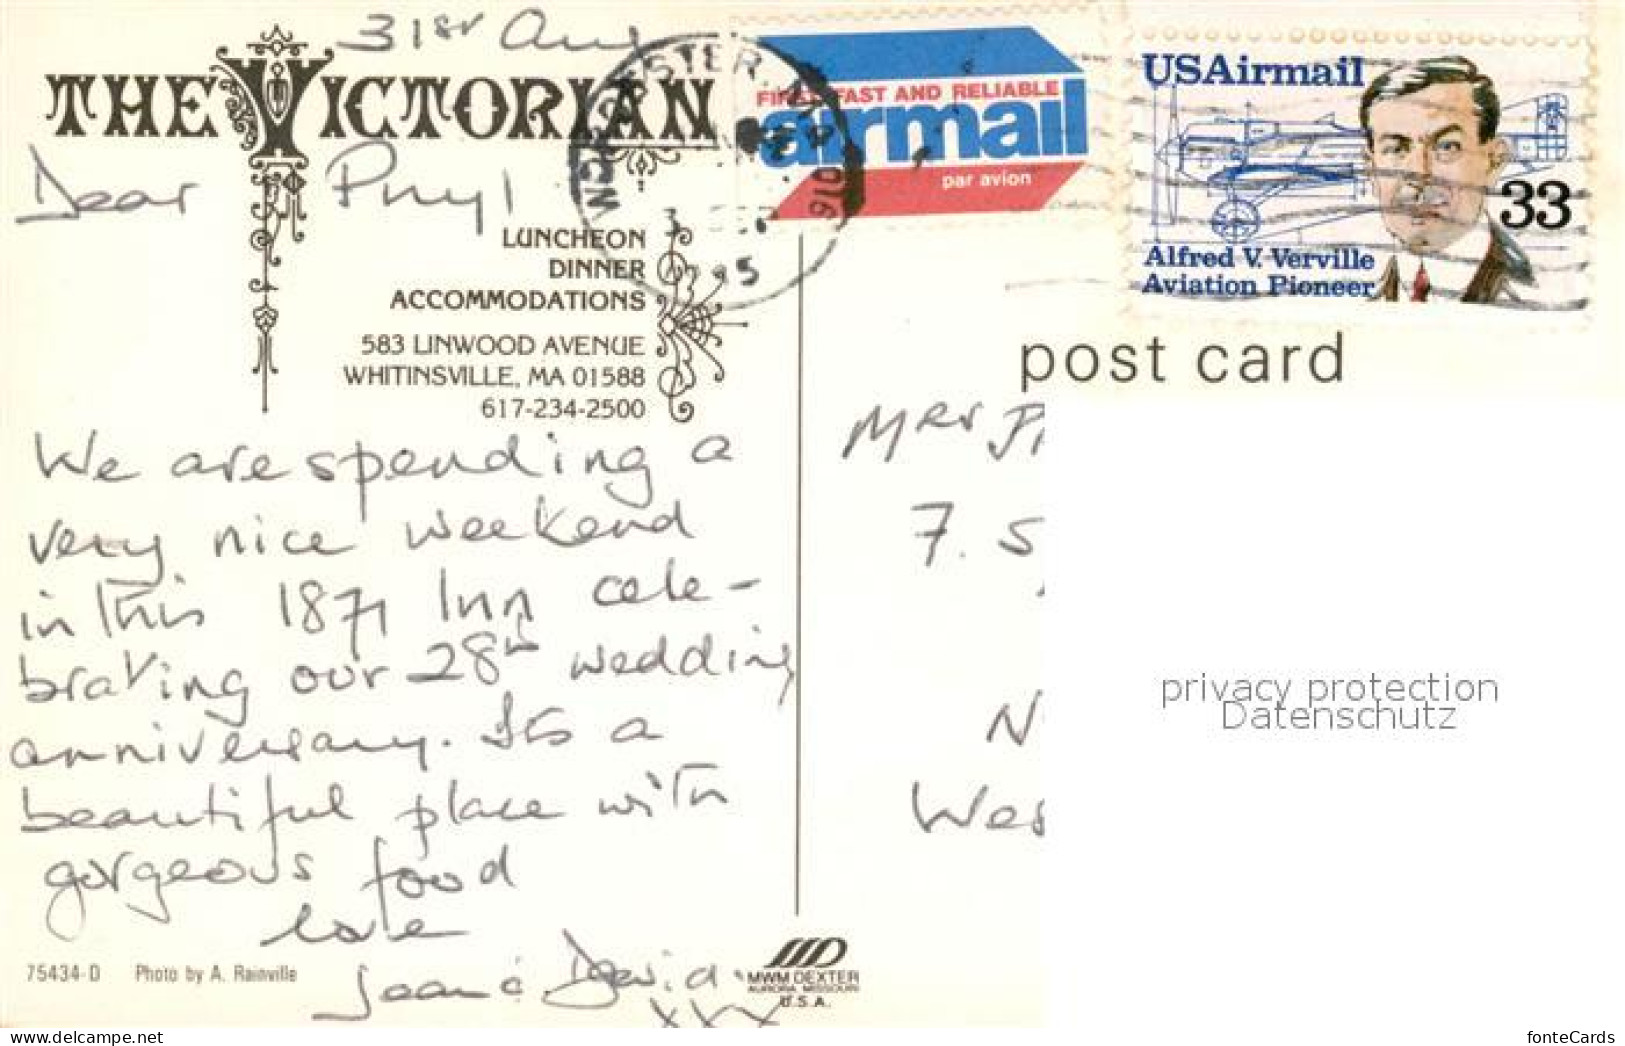 31st Aug
THE VICTORIAN
Dear Phyl
LUNCHEON
DINNER
ACCOMMODATIONS
583 LINWOOD AVENUE
WHITINSVILLE, MA 01588
617-234-2500
We are spending a
very nice weekend
in this 1871 Inn cele-
brating our 28th wedding
anniversary. It's a
beautiful place with
gorgeous food
love
Joan & David
xxx
75434-D Photo by A. Rainville
MWM DEXTER
AURORA MISSOURI
U.S.A.
FIRST FAST AND RELIABLE
airmail
par avion
USAirmail
33
Alfred V. Verville
Aviation Pioneer
post card
Mrs
7. S
N
Wes
privacy protection
Datenschutz
you are viewing this item at www.delcampe.net
fonteCards